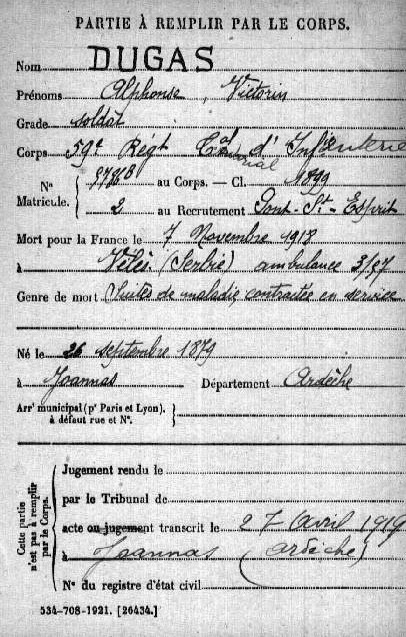 PARTIE À REMPLIR PAR LE CORPS.
Nom DUGAS
Prénoms Alphonse, Victorin
Grade soldat
Corps 59e Régt Cal d'Infanterie
Nº Matricule. { au Corps. — Cl. 1899
2 au Recrutement Pont-St-Esprit
Mort pour la France le 7 Novembre 1918
à Vélès (Serbie) ambulance 3/07
Genre de mort (Suites de maladie contractée en service
Né le 26 septembre 1879
à Joannas Département Ardèche
Arrt municipal (pr Paris et Lyon), à défaut rue et Nº. }
Cette partie n'est pas à remplir par le Corps.
Jugement rendu le
par le Tribunal de
acte ou jugement transcrit le 27 Avril 1919
à Joannas (Ardèche)
Nº du registre d'état civil
534-708-1921. [26434.]